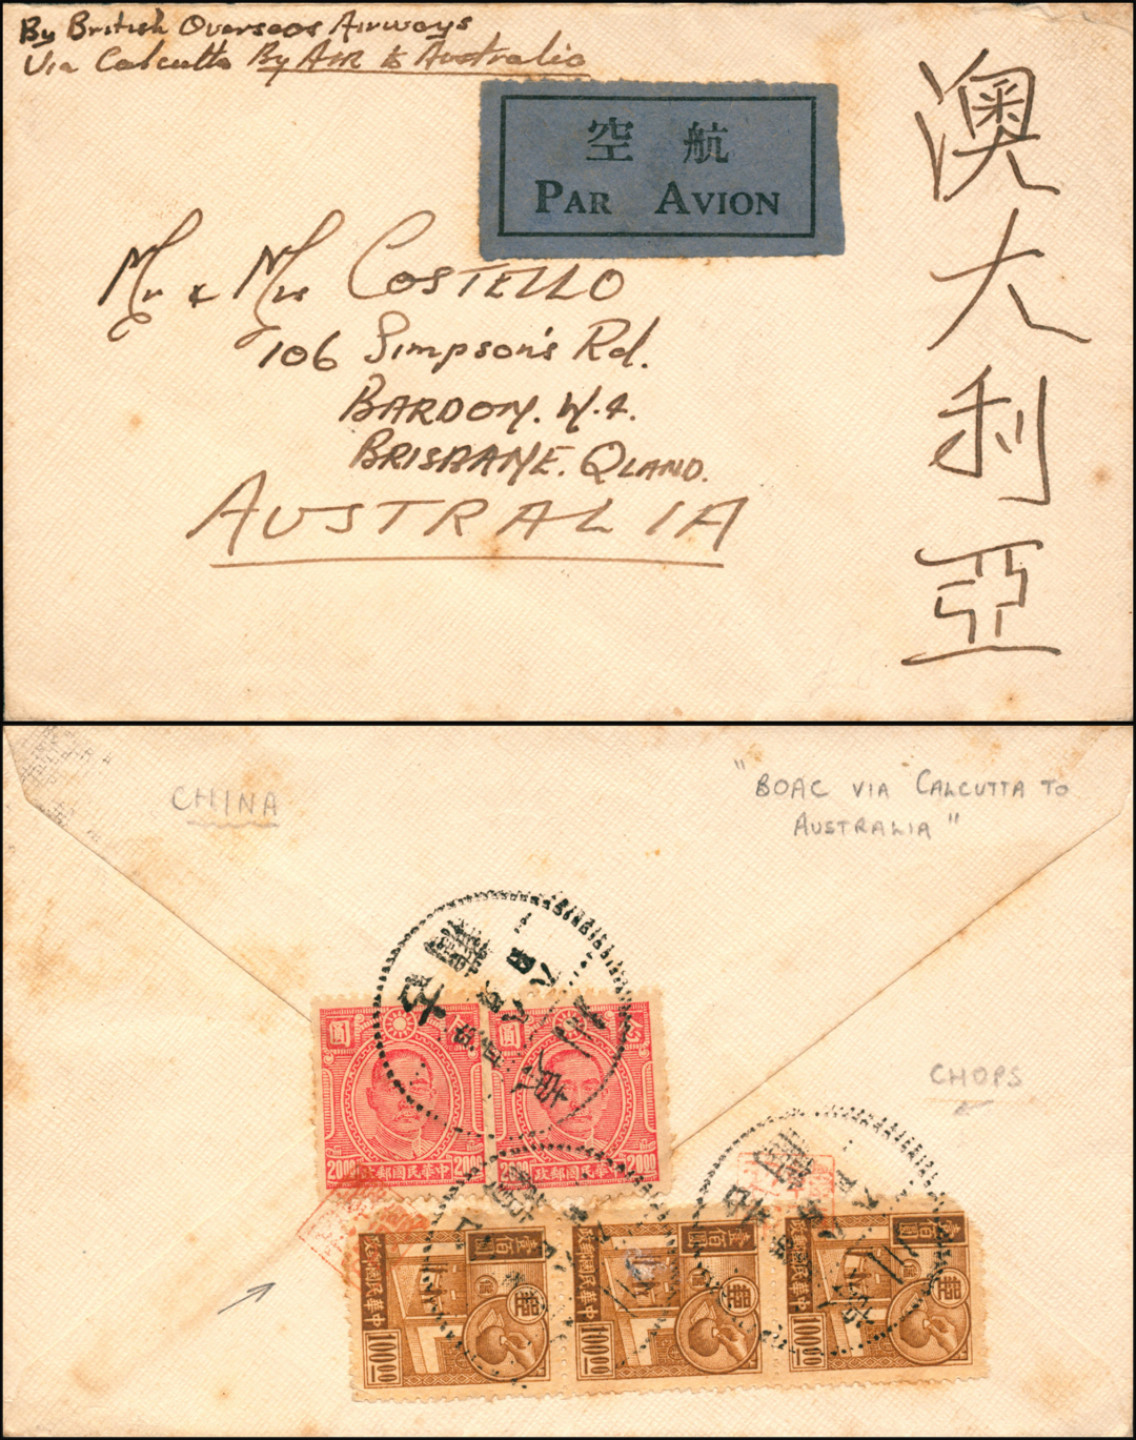 By British Overseas Airways
Via Calcutta By AIR to Australia
空 航
PAR AVION
澳大利亞
Mr & Mrs COSTELLO
106 Simpson's Rd.
BARDON. W.4.
BRISBANE. QLAND.
AUSTRALIA
CHINA
"BOAC VIA CALCUTTA TO
AUSTRALIA"
CHOPS
圓
圓
20.00
中華民國郵政
20.00
政郵國民華
20.00
壹佰圓
郵
中華民國郵政
100.00
壹佰圓
郵
中華民國郵政
100.00
壹佰圓
郵
中華民國郵政
100.00